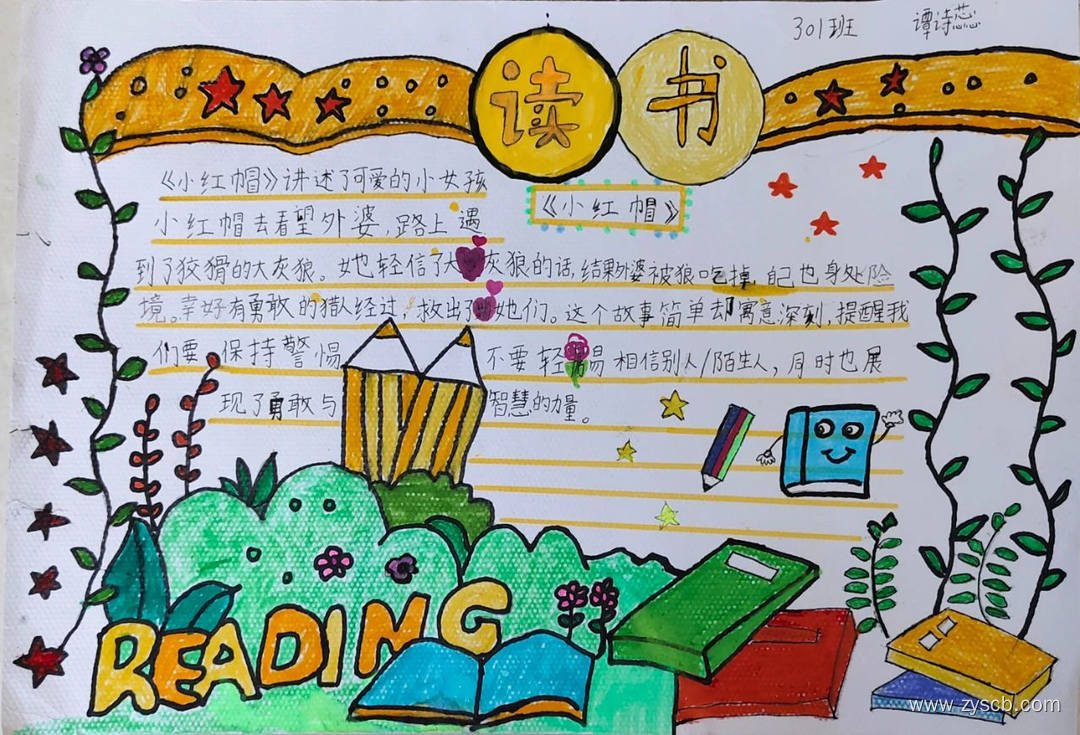 301班 谭诗蕊
读书
《小红帽》
《小红帽》讲述了可爱的小女孩
小红帽去看望外婆,路上遇
到了狡猾的大灰狼。她轻信了大灰狼的话,结果外婆被狼吃掉,自己也身处险
境。幸好有勇敢的猎人经过,救出了她们。这个故事简单却寓意深刻,提醒我
们要保持警惕 不要轻易相信别人/陌生人,同时也展
现了勇敢与 智慧的力量。
READING
www.zyscb.com